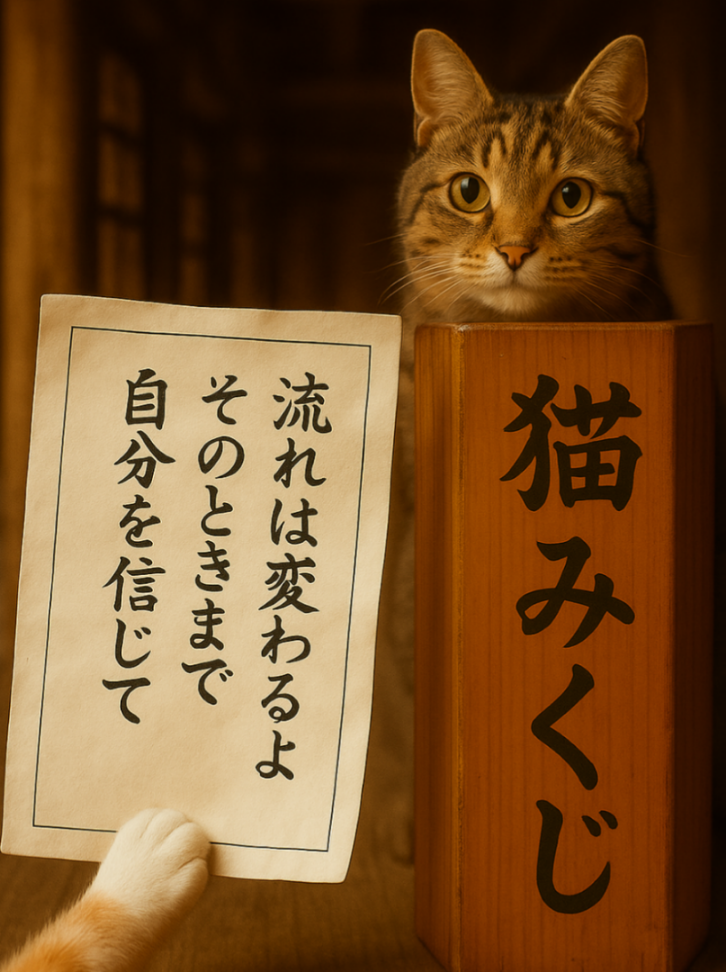 流れは変わるよ
そのときまで
自分を信じて
猫みくじ